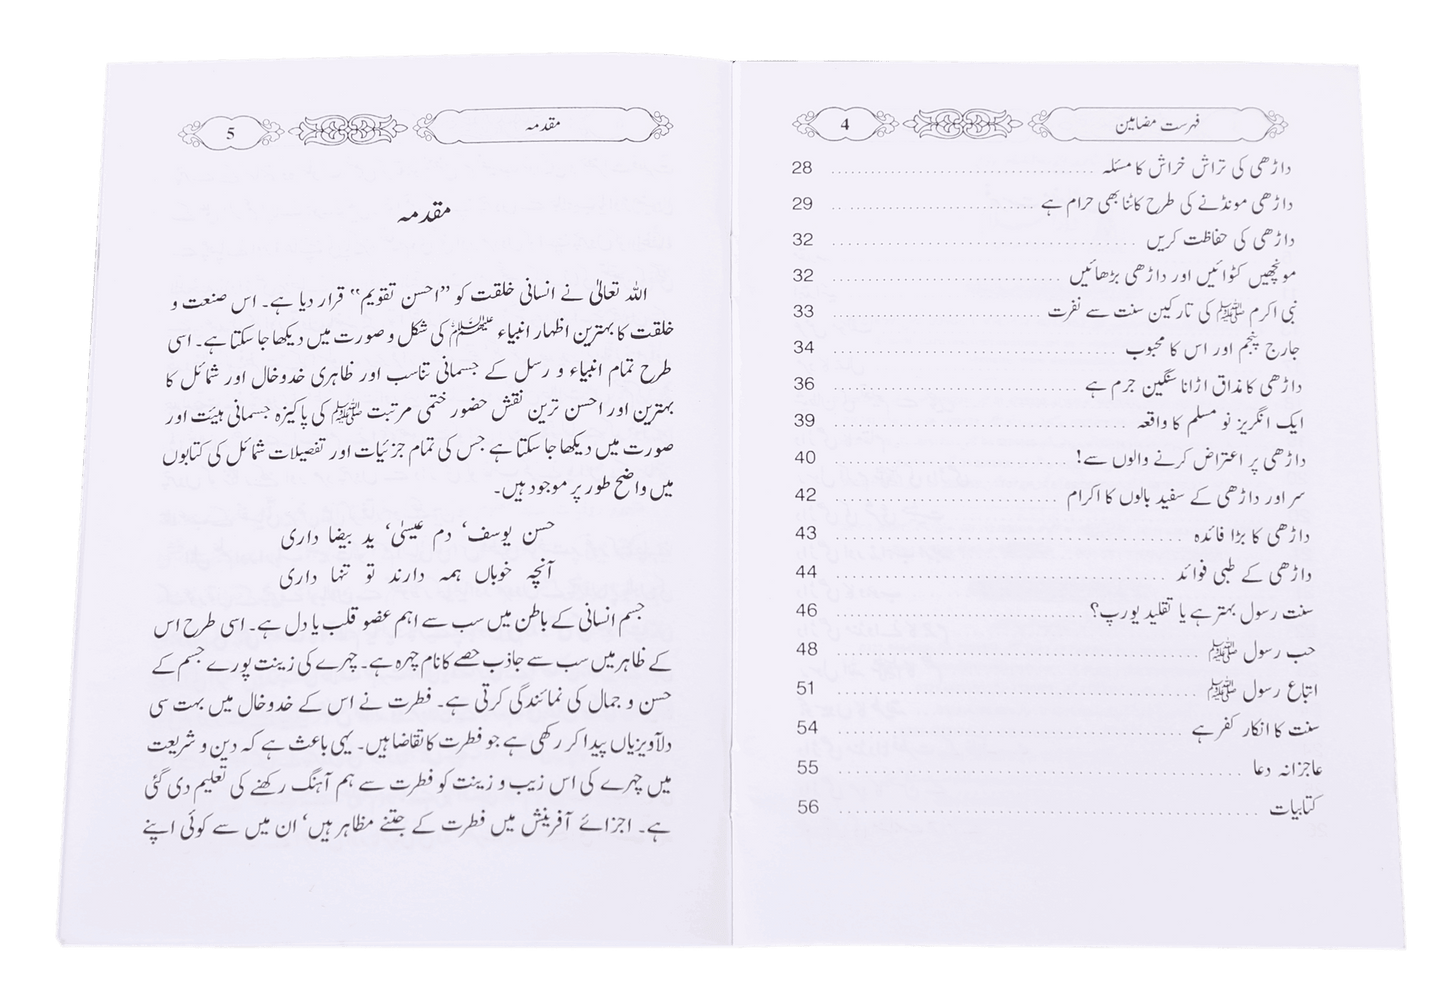 فہرست مضامین
4
داڑھی کی تراش خراش کا مسئلہ 28
داڑھی مونڈنے کی طرح کاٹنا بھی حرام ہے 29
داڑھی کی حفاظت کریں 32
مونچھیں کٹوائیں اور داڑھی بڑھائیں 32
نبی اکرم ﷺ کی تارکین سنت سے نفرت 33
جارج پنجم اور اس کا محبوب 34
داڑھی کا مذاق اڑانا سنگین جرم ہے 36
ایک انگریز نو مسلم کا واقعہ 39
داڑھی پر اعتراض کرنے والوں سے! 40
سر اور داڑھی کے سفید بالوں کا اکرام 42
داڑھی کا بڑا فائدہ 43
داڑھی کے طبی فوائد 44
سنت رسول بہتر ہے یا تقلید یورپ؟ 46
حب رسول ﷺ 48
اتباع رسول ﷺ 51
سنت کا انکار کفر ہے 54
عاجزانہ دعا 55
کتابیات 56
مقدمہ
5
مقدمہ
اللہ تعالیٰ نے انسانی خلقت کو ”احسن تقویم“ قرار دیا ہے۔ اس صنعت و
خلقت کا بہترین اظہار انبیاء علیہم السلام کی شکل و صورت میں دیکھا جا سکتا ہے۔ اسی
طرح تمام انبیاء و رسل کے جسمانی تناسب اور ظاہری خدوخال اور شمائل کا
بہترین اور احسن ترین نقش حضور ختمی مرتبت ﷺ کی پاکیزہ جسمانی ہیئت اور
صورت میں دیکھا جا سکتا ہے جس کی تمام جزئیات اور تفصیلات شمائل کی کتابوں
میں واضح طور پر موجود ہیں۔
حسن یوسف‘ دم عیسیٰ‘ ید بیضا داری
آنچہ خوباں ہمہ دارند تو تنہا داری
جسم انسانی کے باطن میں سب سے اہم عضو قلب یا دل ہے۔ اسی طرح اس
کے ظاہر میں سب سے جاذب حصے کا نام چہرہ ہے۔ چہرے کی زینت پورے جسم کے
حسن و جمال کی نمائندگی کرتی ہے۔ فطرت نے اس کے خدوخال میں بہت سی
دلآویزیاں پیدا کر رکھی ہے جو فطرت کا تقاضا ہیں۔ یہی باعث ہے کہ دین و شریعت
میں چہرے کی اس زیب و زینت کو فطرت سے ہم آہنگ رکھنے کی تعلیم دی گئی
ہے۔ اجزائے آفرینش میں فطرت کے جتنے مظاہر ہیں‘ ان میں سے کوئی اپنے